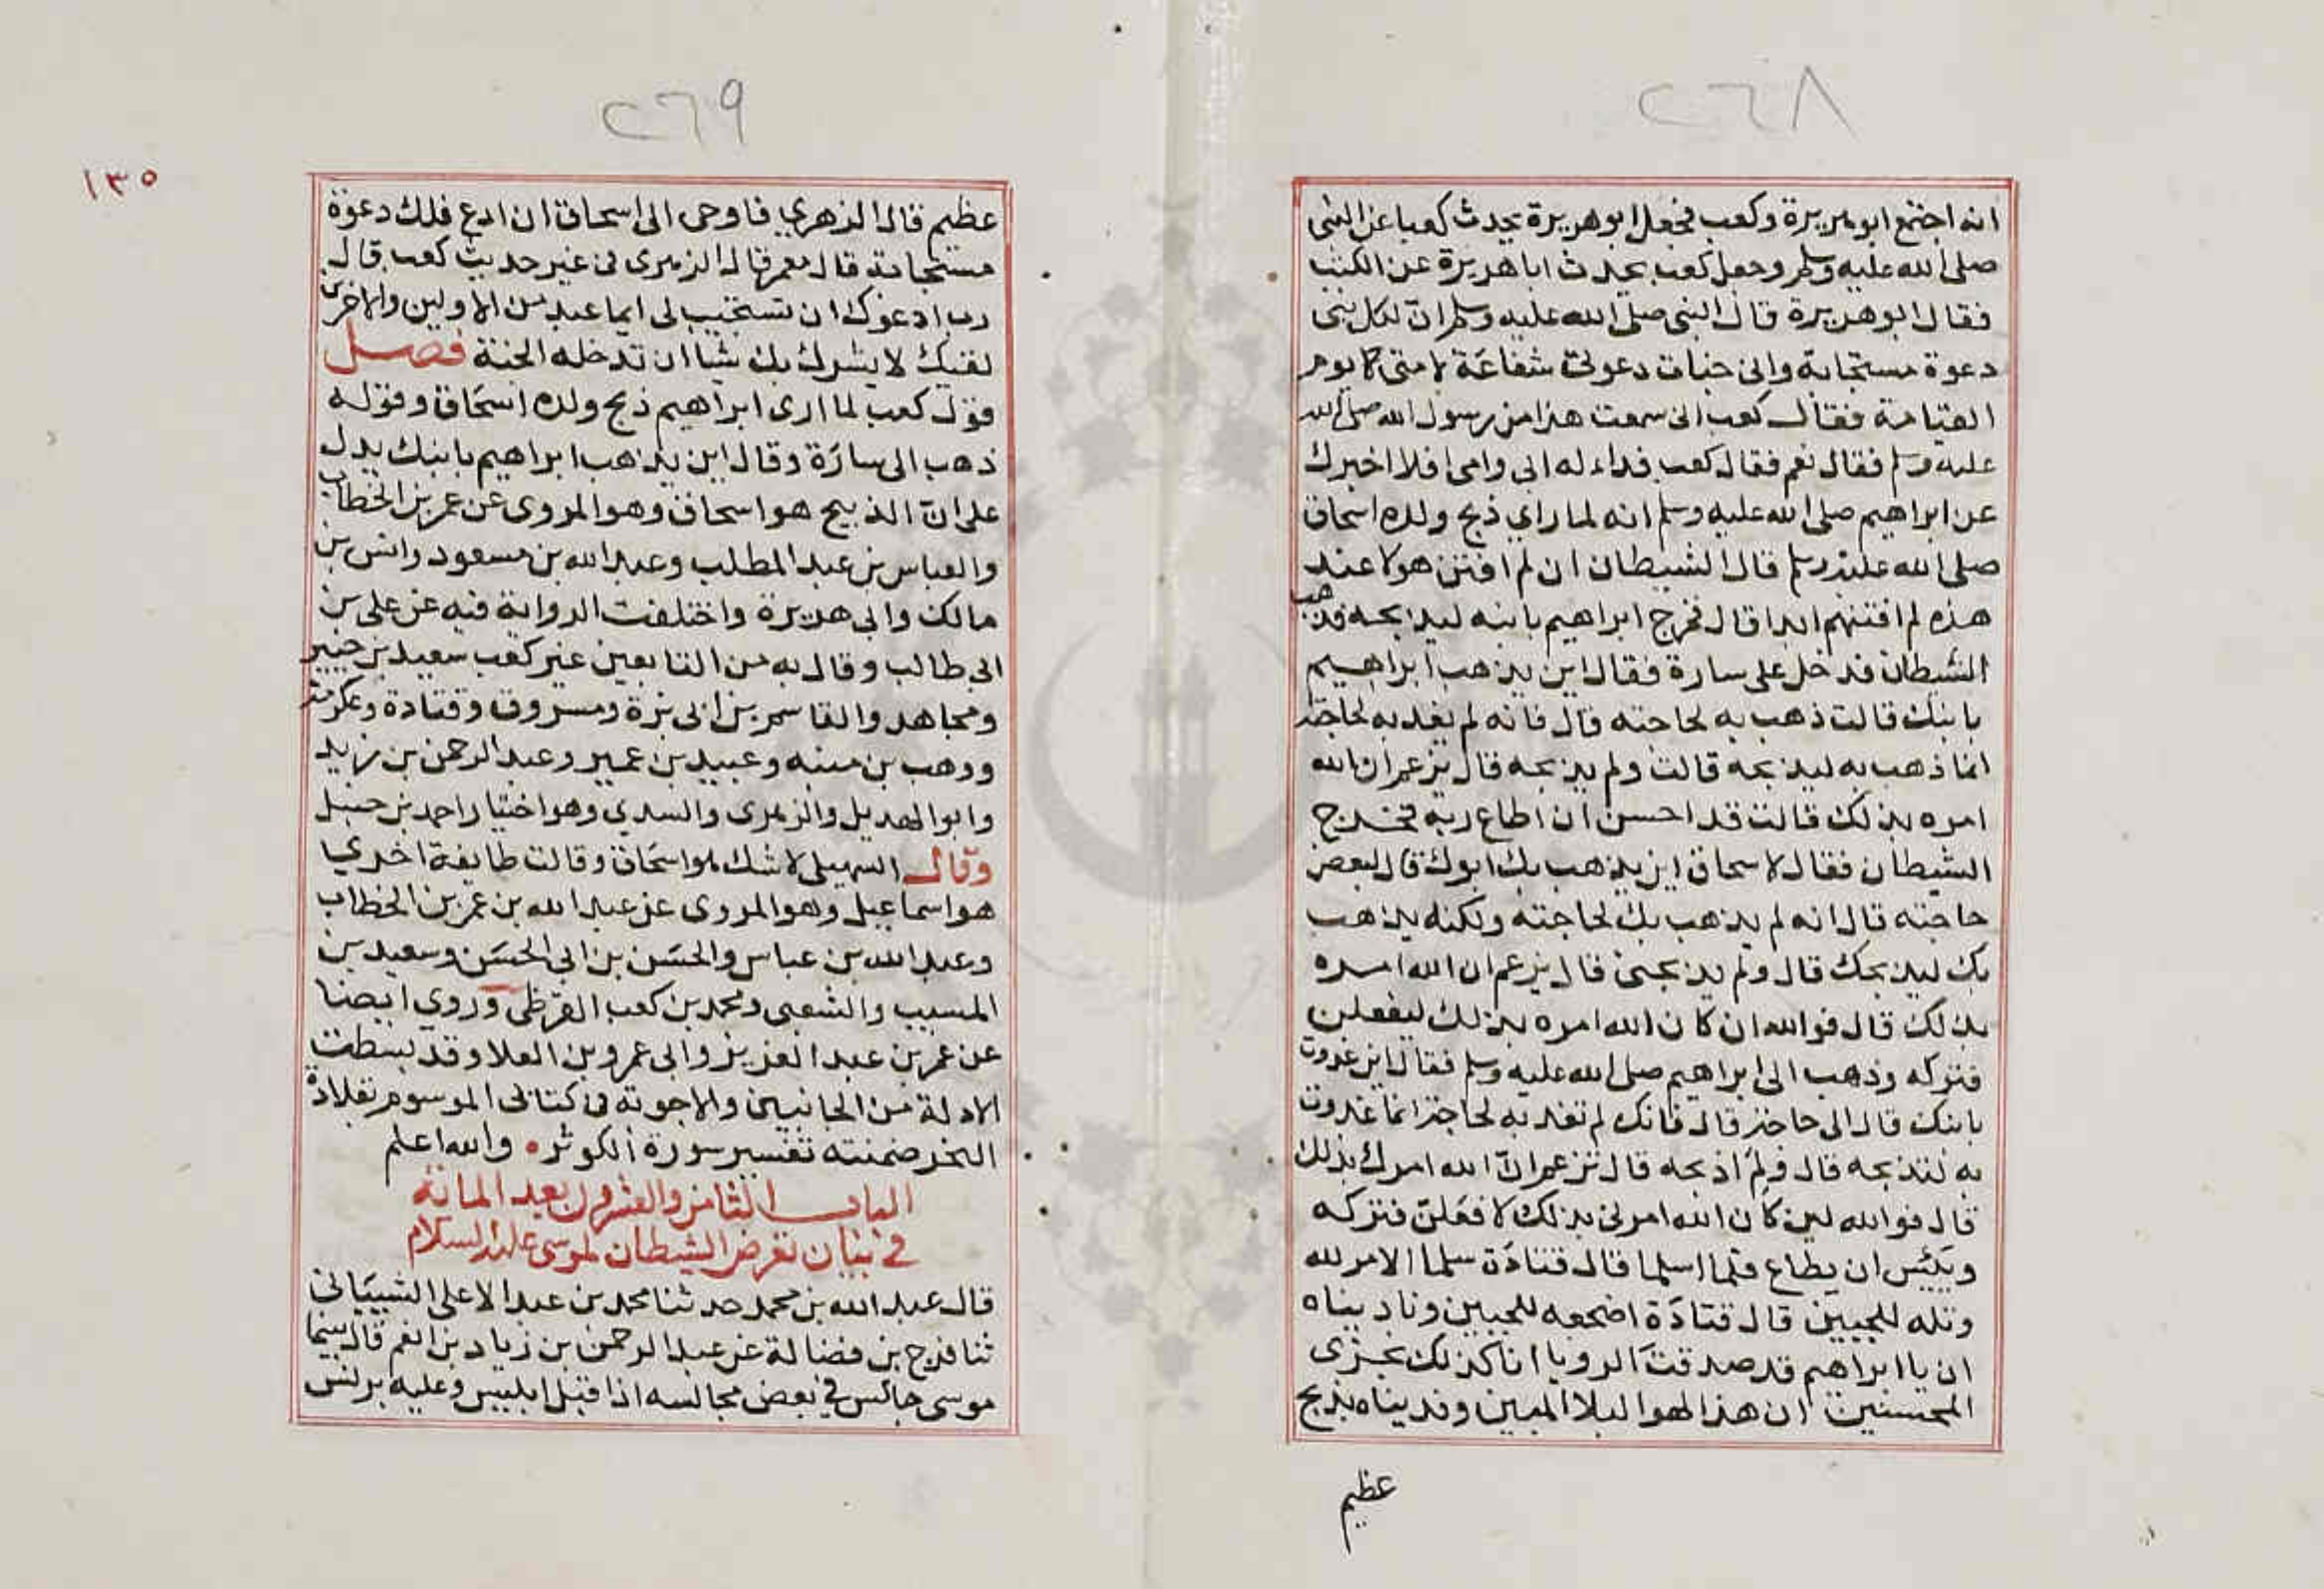 ٢٦٨
انه اجتمع ابو هريرة وكعب فجعل ابو هريرة يحدث كعبا عن النبي
صلى الله عليه وسلم وجعل كعب يحدث ابا هريرة عن الكتب
فقال ابو هريرة قال النبي صلى الله عليه وسلم ان لكل نبي
دعوة مستجابة واني خبات دعوتي شفاعة لامتي يوم
القيامة فقال كعب اني سمعت هذا من رسول الله صلى الله
عليه وسلم فقال نعم فقال كعب فداء له ابي وامي افلا اخبرك
عن ابراهيم صلى الله عليه وسلم انه لما راي ذبح ولده اسحاق
صلى الله عليه وسلم قال الشيطان ان لم افتن هولا عند
هذه لم افتنهم ابدا قال فخرج ابراهيم بابنه ليذبحه فذهب
الشيطان فدخل على سارة فقال اين يذهب ابراهيم
بابنك قالت ذهب به لحاجته قال فانه لم يغد به لحاجة
انما ذهب به ليذبحه قالت ولم يذبحه قال يزعم ان الله
امره بذلك قالت قد احسن ان اطاع ربه فخرج
الشيطان فقال لاسحاق اين يذهب بك ابوك قال لبعض
حاجته قال انه لم يذهب بك لحاجته ولكنه يذهب
بك ليذبحك قال ولم يذبحني قال يزعم ان الله امره
بذلك قال فوالله ان كان الله امره بذلك ليفعلن
فتركه وذهب الى ابراهيم صلى الله عليه وسلم فقال اين غدوت
بابنك قال الى حاجة قال فانك لم تغد به لحاجة انما غدوت
به لتذبحه قال ولم اذبحه قال تزعم ان الله امرك بذلك
قال فوالله لين كان الله امرني بذلك لافعلن فتركه
ويئس ان يطاع فلما اسلما قال قتادة سلما الامر لله
وتله للجبين قال قتادة اضجعه للجبين وناديناه
ان يا ابراهيم قد صدقت الرويا انا كذلك نجزي
المحسنين ان هذا لهو البلا المبين وفديناه بذبح
عظيم
٢٦٩
١٣٥
عظيم قال الزهري فاوحى الى اسحاق ان ادع فلك دعوة
مستجابة قال معمر قال الزهري في غير حديث كعب قال
رب ادعوك ان تستجيب لي ايما عبد من الاولين والاخرين
لقيك لا يشرك بك شيا ان تدخله الجنة فصل
قول كعب لما ارى ابراهيم ذبح ولده اسحاق وقوله
ذهب الى سارة وقال اين يذهب ابراهيم بابنك يدل
على ان الذبيح هو اسحاق وهو المروى عن عمر بن الخطاب
والعباس بن عبد المطلب وعبد الله بن مسعود وانس بن
مالك وابي هريرة واختلفت الرواية فيه عن علي بن
ابي طالب وقال به من التابعين غير كعب سعيد بن جبير
ومجاهد والقاسم بن ابي بزة ومسروق وقتادة وعكرمة
ووهب بن منبه وعبيد بن عمير وعبد الرحمن بن زيد
وابو الهديل والزهرى والسدي وهو اختيار احمد بن حنبل
وقال السهيلي لا شك هو اسحاق وقالت طايفة اخري
هو اسماعيل وهو المروى عن عبد الله بن عمر بن الخطاب
وعبد الله بن عباس والحسن بن ابي الحسن وسعيد بن
المسيب والشعبي ومحمد بن كعب القرظي وروي ايضا
عن عمر بن عبد العزيز وابي عمرو بن العلا وقد بسطت
الادلة من الجانبين والاجوبة في كتابي الموسوم بقلادة
النحر ضمنته تفسير سورة الكوثر والله اعلم
الباب الثامن والعشرون بعد الماية
في بيان تعرض الشيطان لموسى عليه السلام
قال عبد الله بن محمد حدثنا محمد بن عبد الاعلى الشيباني
ثنا فرج بن فضالة عن عبد الرحمن بن زياد بن انعم قال بينما
موسى جالس في بعض مجالسه اذ اقبل ابليس وعليه برنس